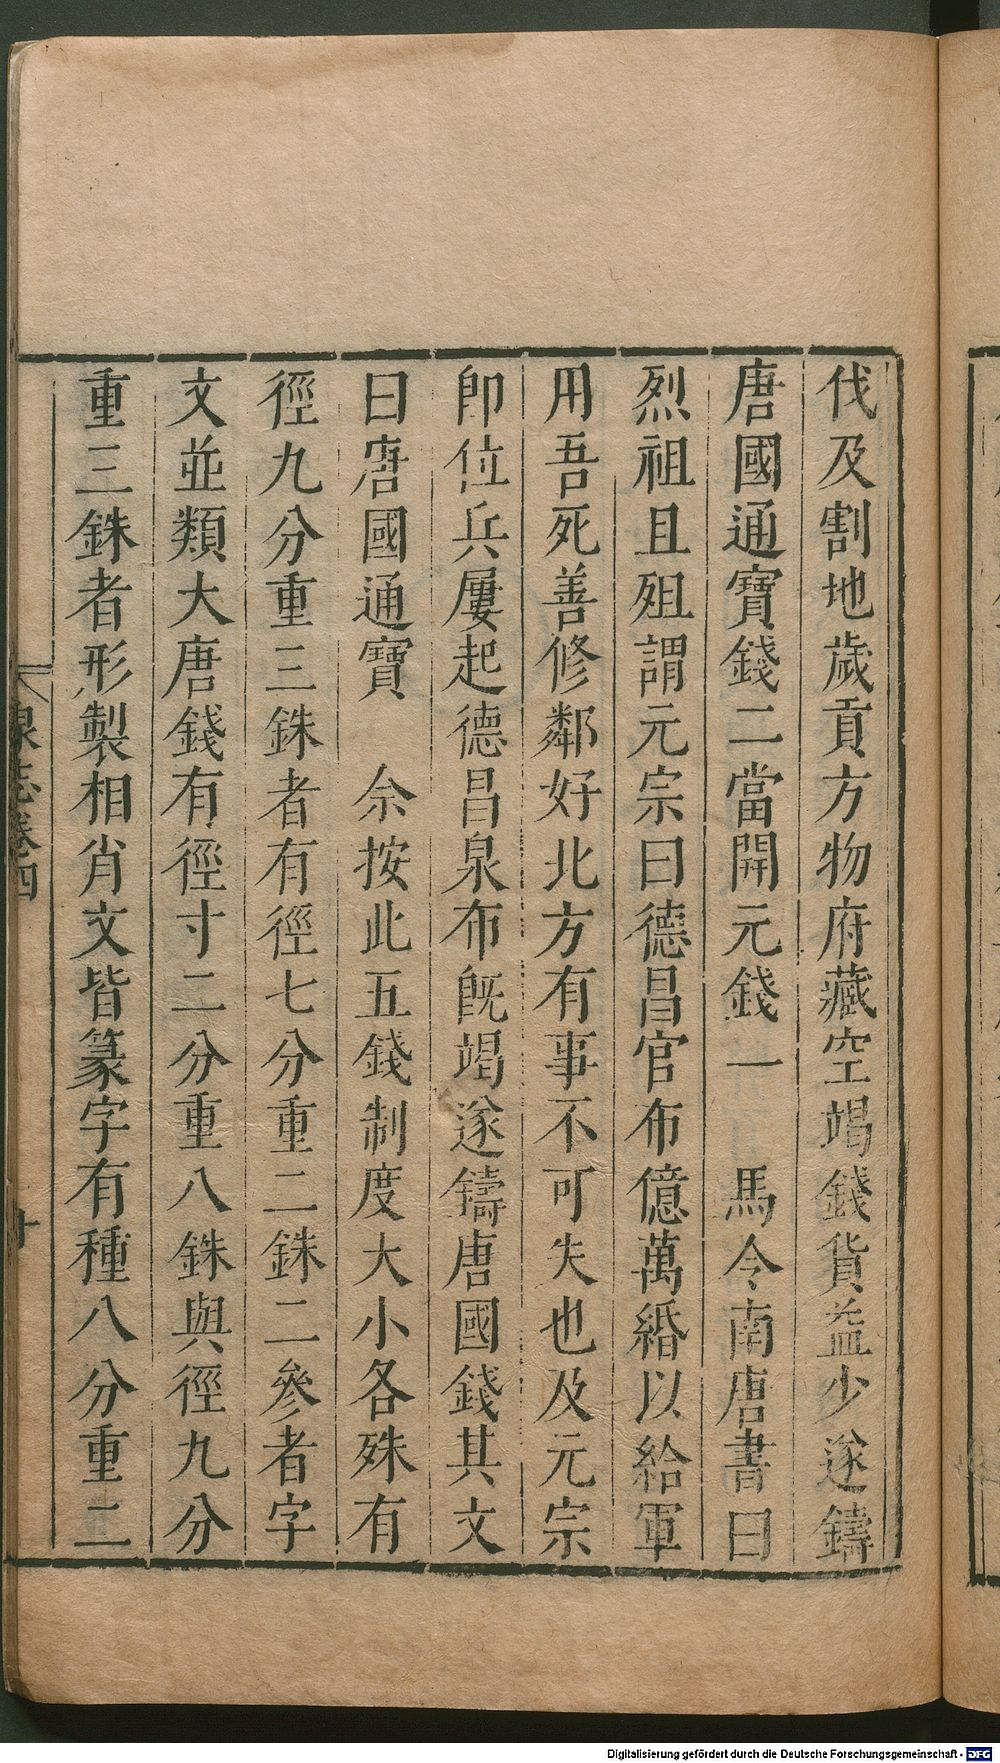 伐及割地歲貢方物府藏空竭錢貨益少遂鑄
唐國通寶錢二當開元錢一　馬令南唐書曰
烈祖且殂謂元宗曰德昌官布億萬緡以給軍
用吾死善修鄰好北方有事不可失也及元宗
卽位兵屢起德昌泉布旣竭遂鑄唐國錢其文
曰唐國通寶　余按此五錢制度大小各殊有
徑九分重三銖者有徑七分重二銖二參者字
文並類大唐錢有徑寸二分重八銖與徑九分
重三銖者形製相肖文皆篆字有種八分重二
泉志卷四
十
Digitalisierung gefördert durch die Deutsche Forschungsgemeinschaft - DFG